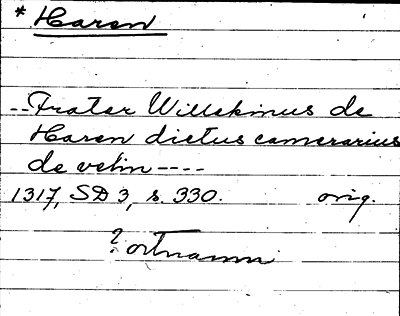 * Haren
-- Frater Willekinus de
Haren dictus camerarius
de velin ----
1317, SD 3, s. 330. orig.
? ortnamn